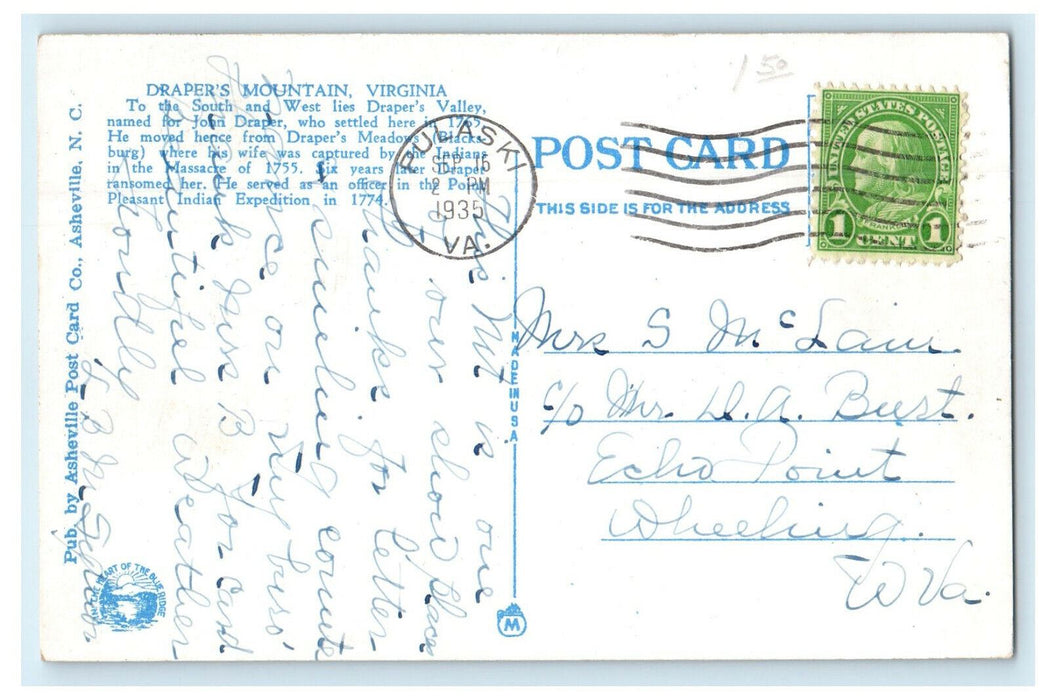 1 50
DRAPER'S MOUNTAIN, VIRGINIA
To the South and West lies Draper's Valley,
named for John Draper, who settled here in 1765.
He moved hence from Draper's Meadow (Blacks-
burg) where his wife was captured by the Indians
in the Massacre of 1755. Six years later Draper
ransomed her. He served as an officer in the Point
Pleasant Indian Expedition in 1774.
Pub. by Asheville Post Card Co., Asheville, N. C.
IN THE HEART OF THE BLUE RIDGE
PULASKI
SEP 16
2 PM
1935
VA.
POST CARD
THIS SIDE IS FOR THE ADDRESS
UNITED STATES POSTAGE
FRANKLIN
1 CENT 1
MADE IN USA
M
This Mt is one
of our show places
Thanks for letter
& smelling
once on
Thank Mrs B for card
Beautiful weather
Fondly
Mrs S McLain
c/o Mr. D. A. Bust.
Echo Point
Wheeling.
W Va.